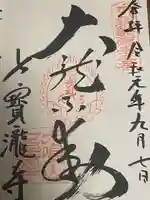 奉拝 令和元年九月七日
大龍不動
七寳瀧寺